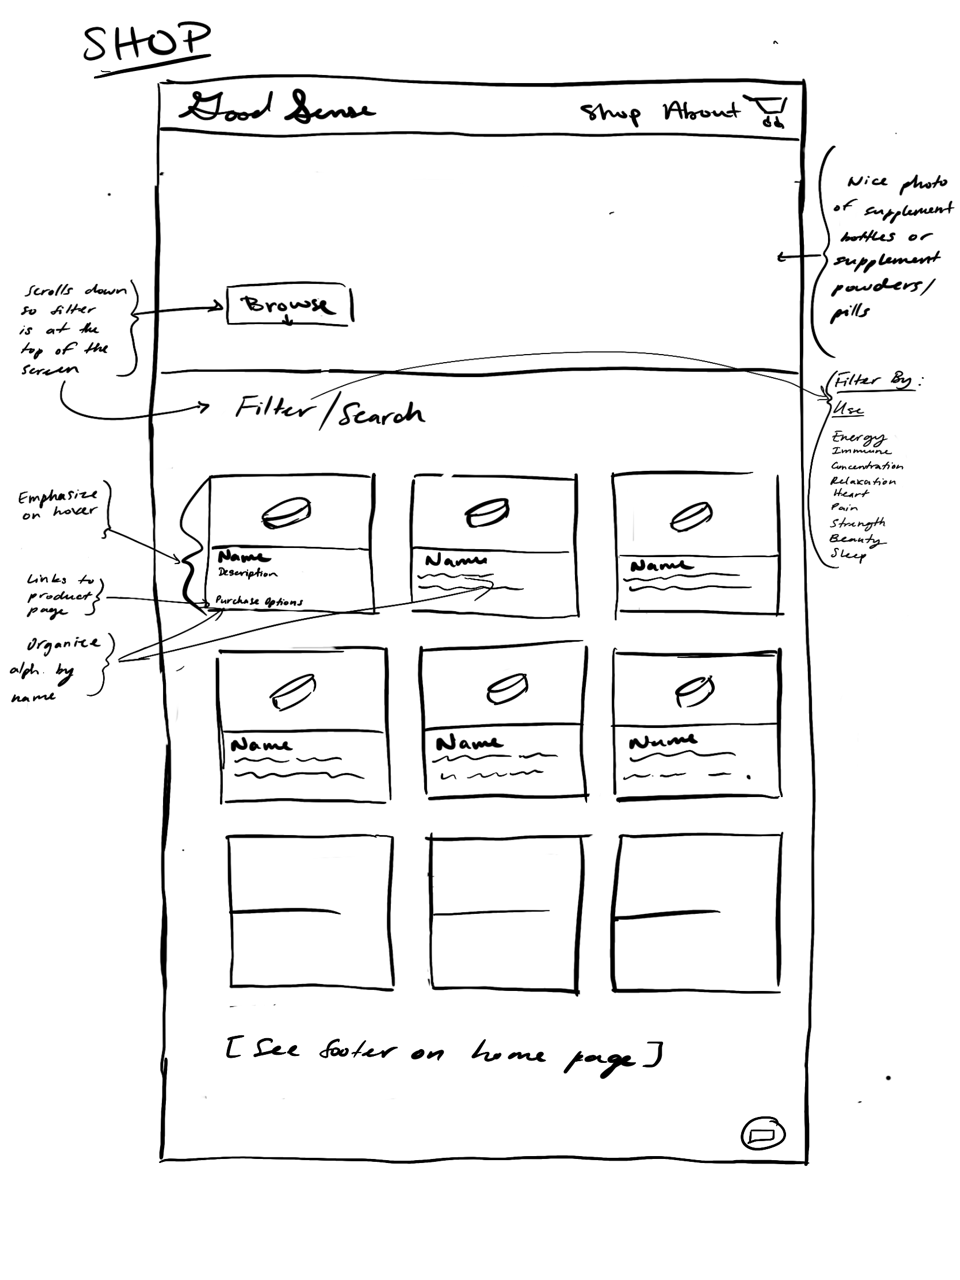 SHOP
Good Sense
Shop About
Nice photo
of supplement
bottles or
supplement
powders/
pills
Scrolls down
so filter
is at the
top of the
screen
Browse
Filter/Search
Filter By:
Use
Energy
Immune
Concentration
Relaxation
Heart
Pain
Strength
Beauty
Sleep
Emphasize
on hover
Links to
product
page
Organize
alph. by
name
Name
Description
Purchase Options
Name
Name
Name
Name
Name
[See footer on home page]